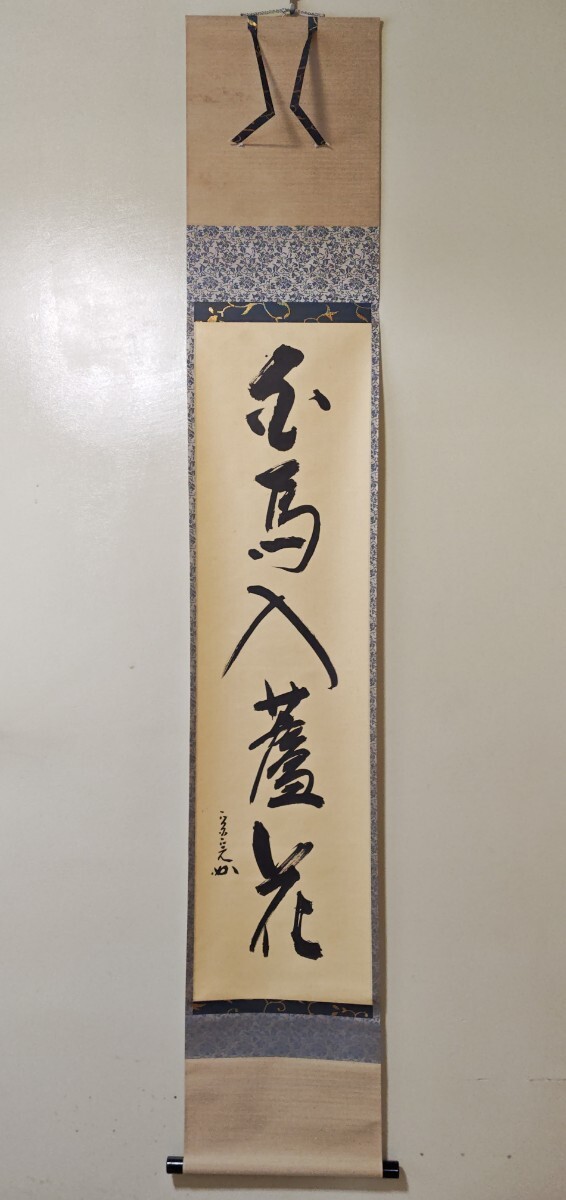 白馬入蘆花